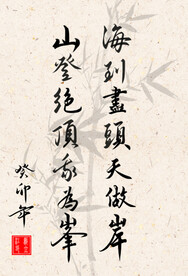 海到盡頭天做岸
山登絕頂我為峯
癸卯年